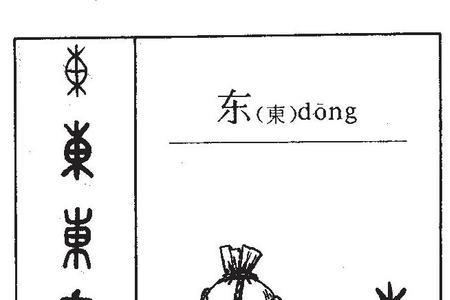 东(東)dōng
東
東
東